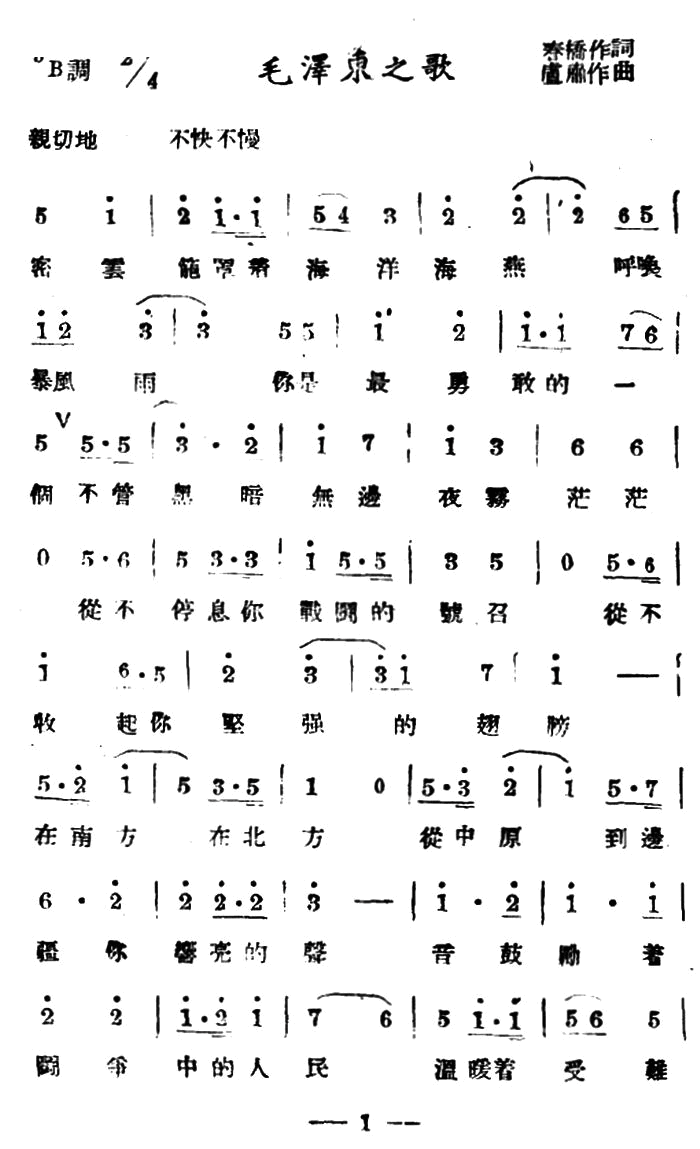 毛澤東之歌
春橋作詞
B調 2/4
盧肅作曲
親切地 不快不慢
5 i | 2 i·i | 5 4 3 | 2 2 | 2 6 5 |
密雲籠罩着海洋海燕 呼喚
i 2 3 | 3 5 5 | i 2 | i·i 7 6 |
暴風雨 你是最勇敢的一
5 V 5·5 | 3·2 | i 7 | i 3 | 6 6 |
個不管黑暗無邊夜霧茫茫
0 5·6 | 5 3·3 | i 5·5 | 3 5 | 0 5·6 |
從不停息你戰鬪的號召 從不
i 6·5 | 2 3 | 3 i 7 | i — |
收起你堅强的翅膀
5·2 i | 5 3·5 | 1 0 | 5·3 2 | i 5·7 |
在南方 在北方 從中原 到邊
6·2 | 2 2·2 | 3 — | i·2 | i·i |
疆你響亮的聲音鼓勵着
2 2 | i·2 i | 7 6 | 5 i·i | 5 6 5 |
鬪爭中的人民 溫暖着受難
— 1 —